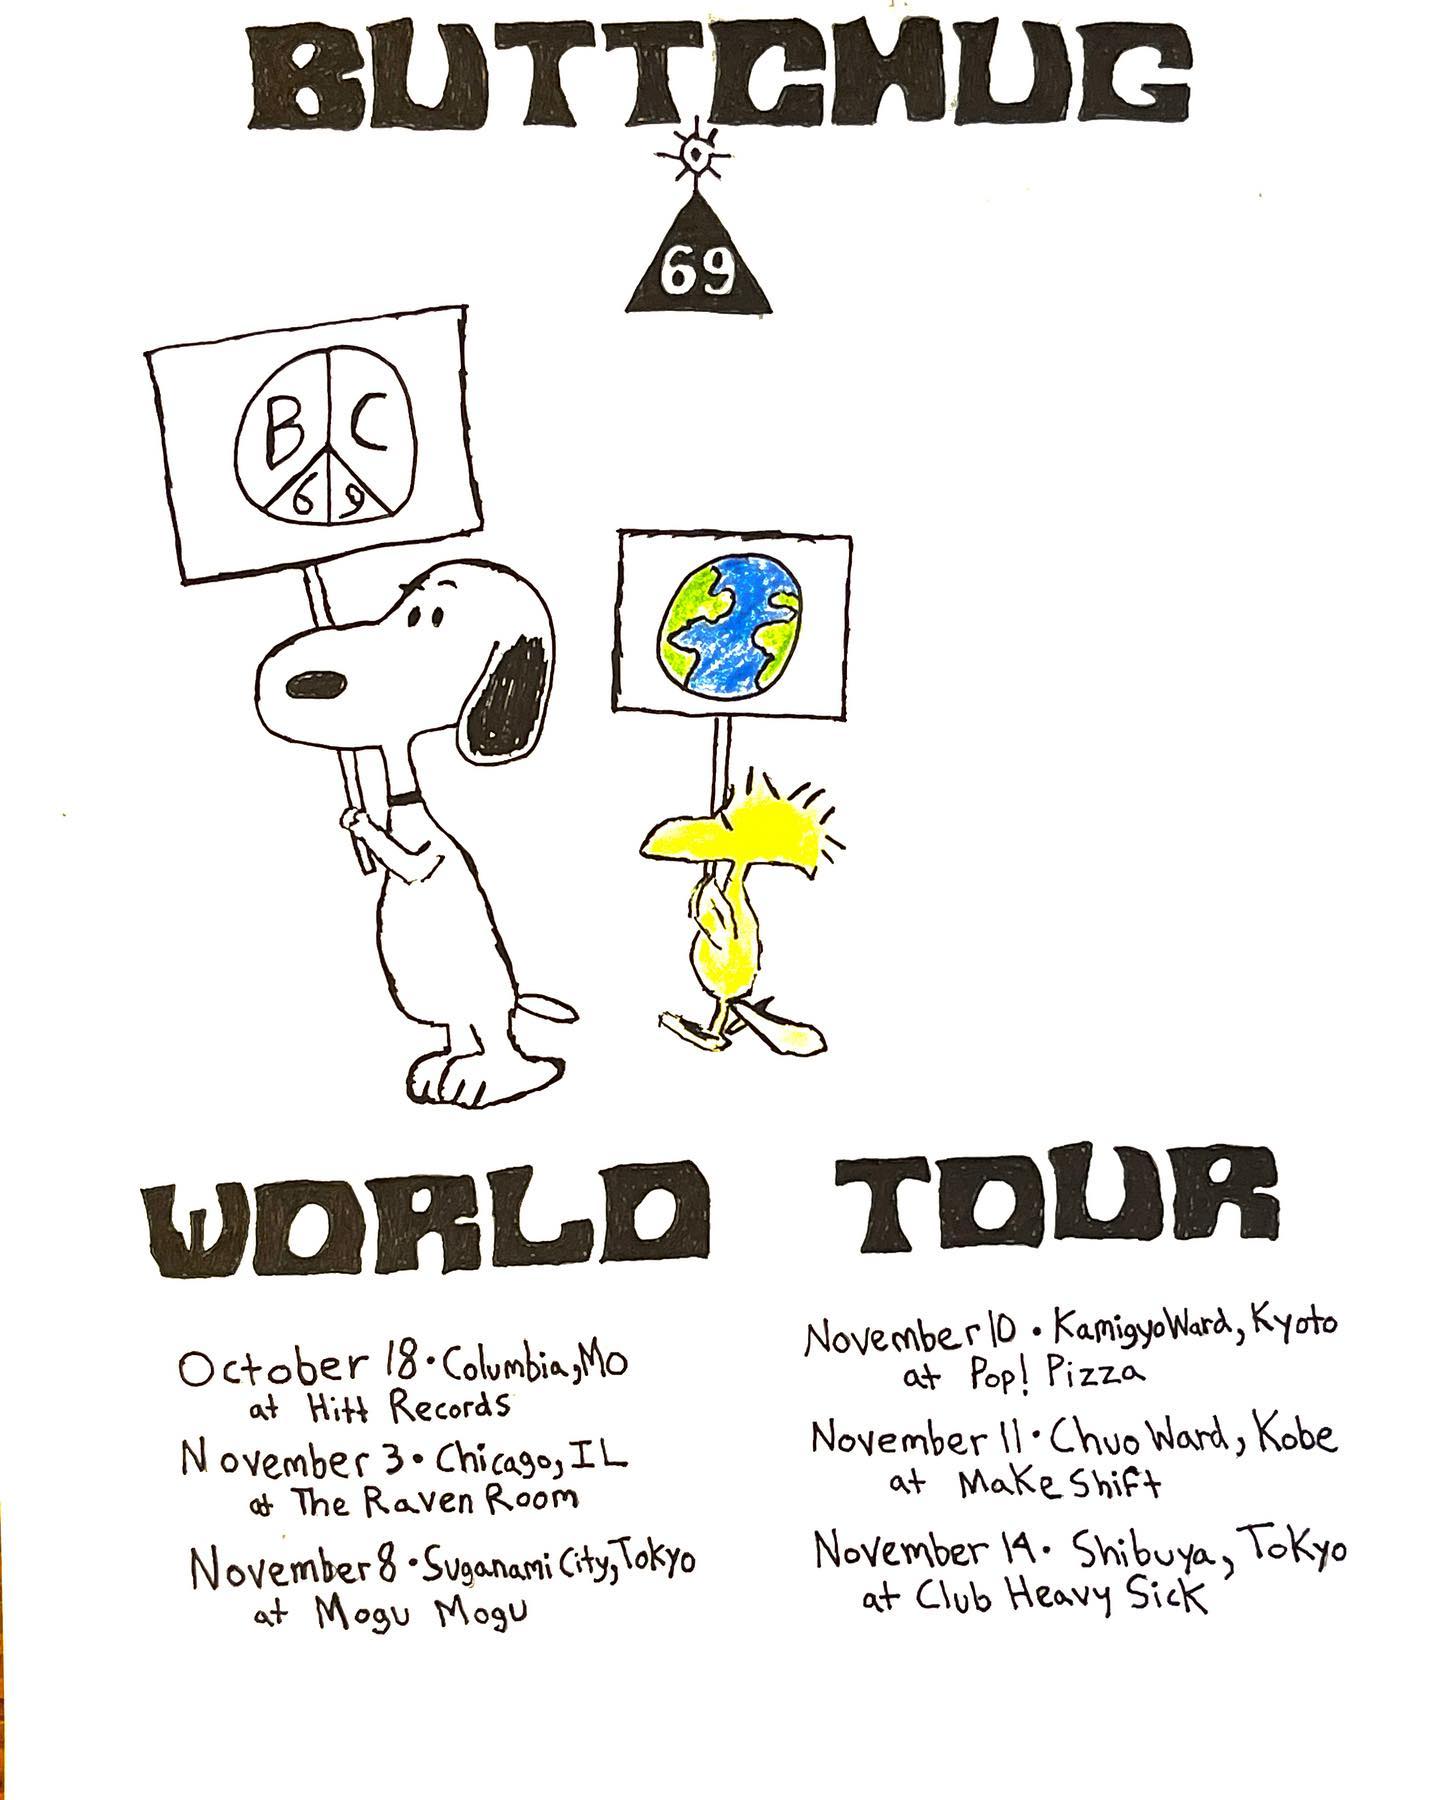 BUTTCHUG
69
B C
6 9
WORLD TOUR
October 18 • Columbia, MO
at Hitt Records
November 3 • Chicago, IL
at The Raven Room
November 8 • Suganami City, Tokyo
at Mogu Mogu
November 10 • Kamigyo Ward, Kyoto
at Pop! Pizza
November 11 • Chuo Ward, Kobe
at Make Shift
November 14 • Shibuya, Tokyo
at Club Heavy Sick